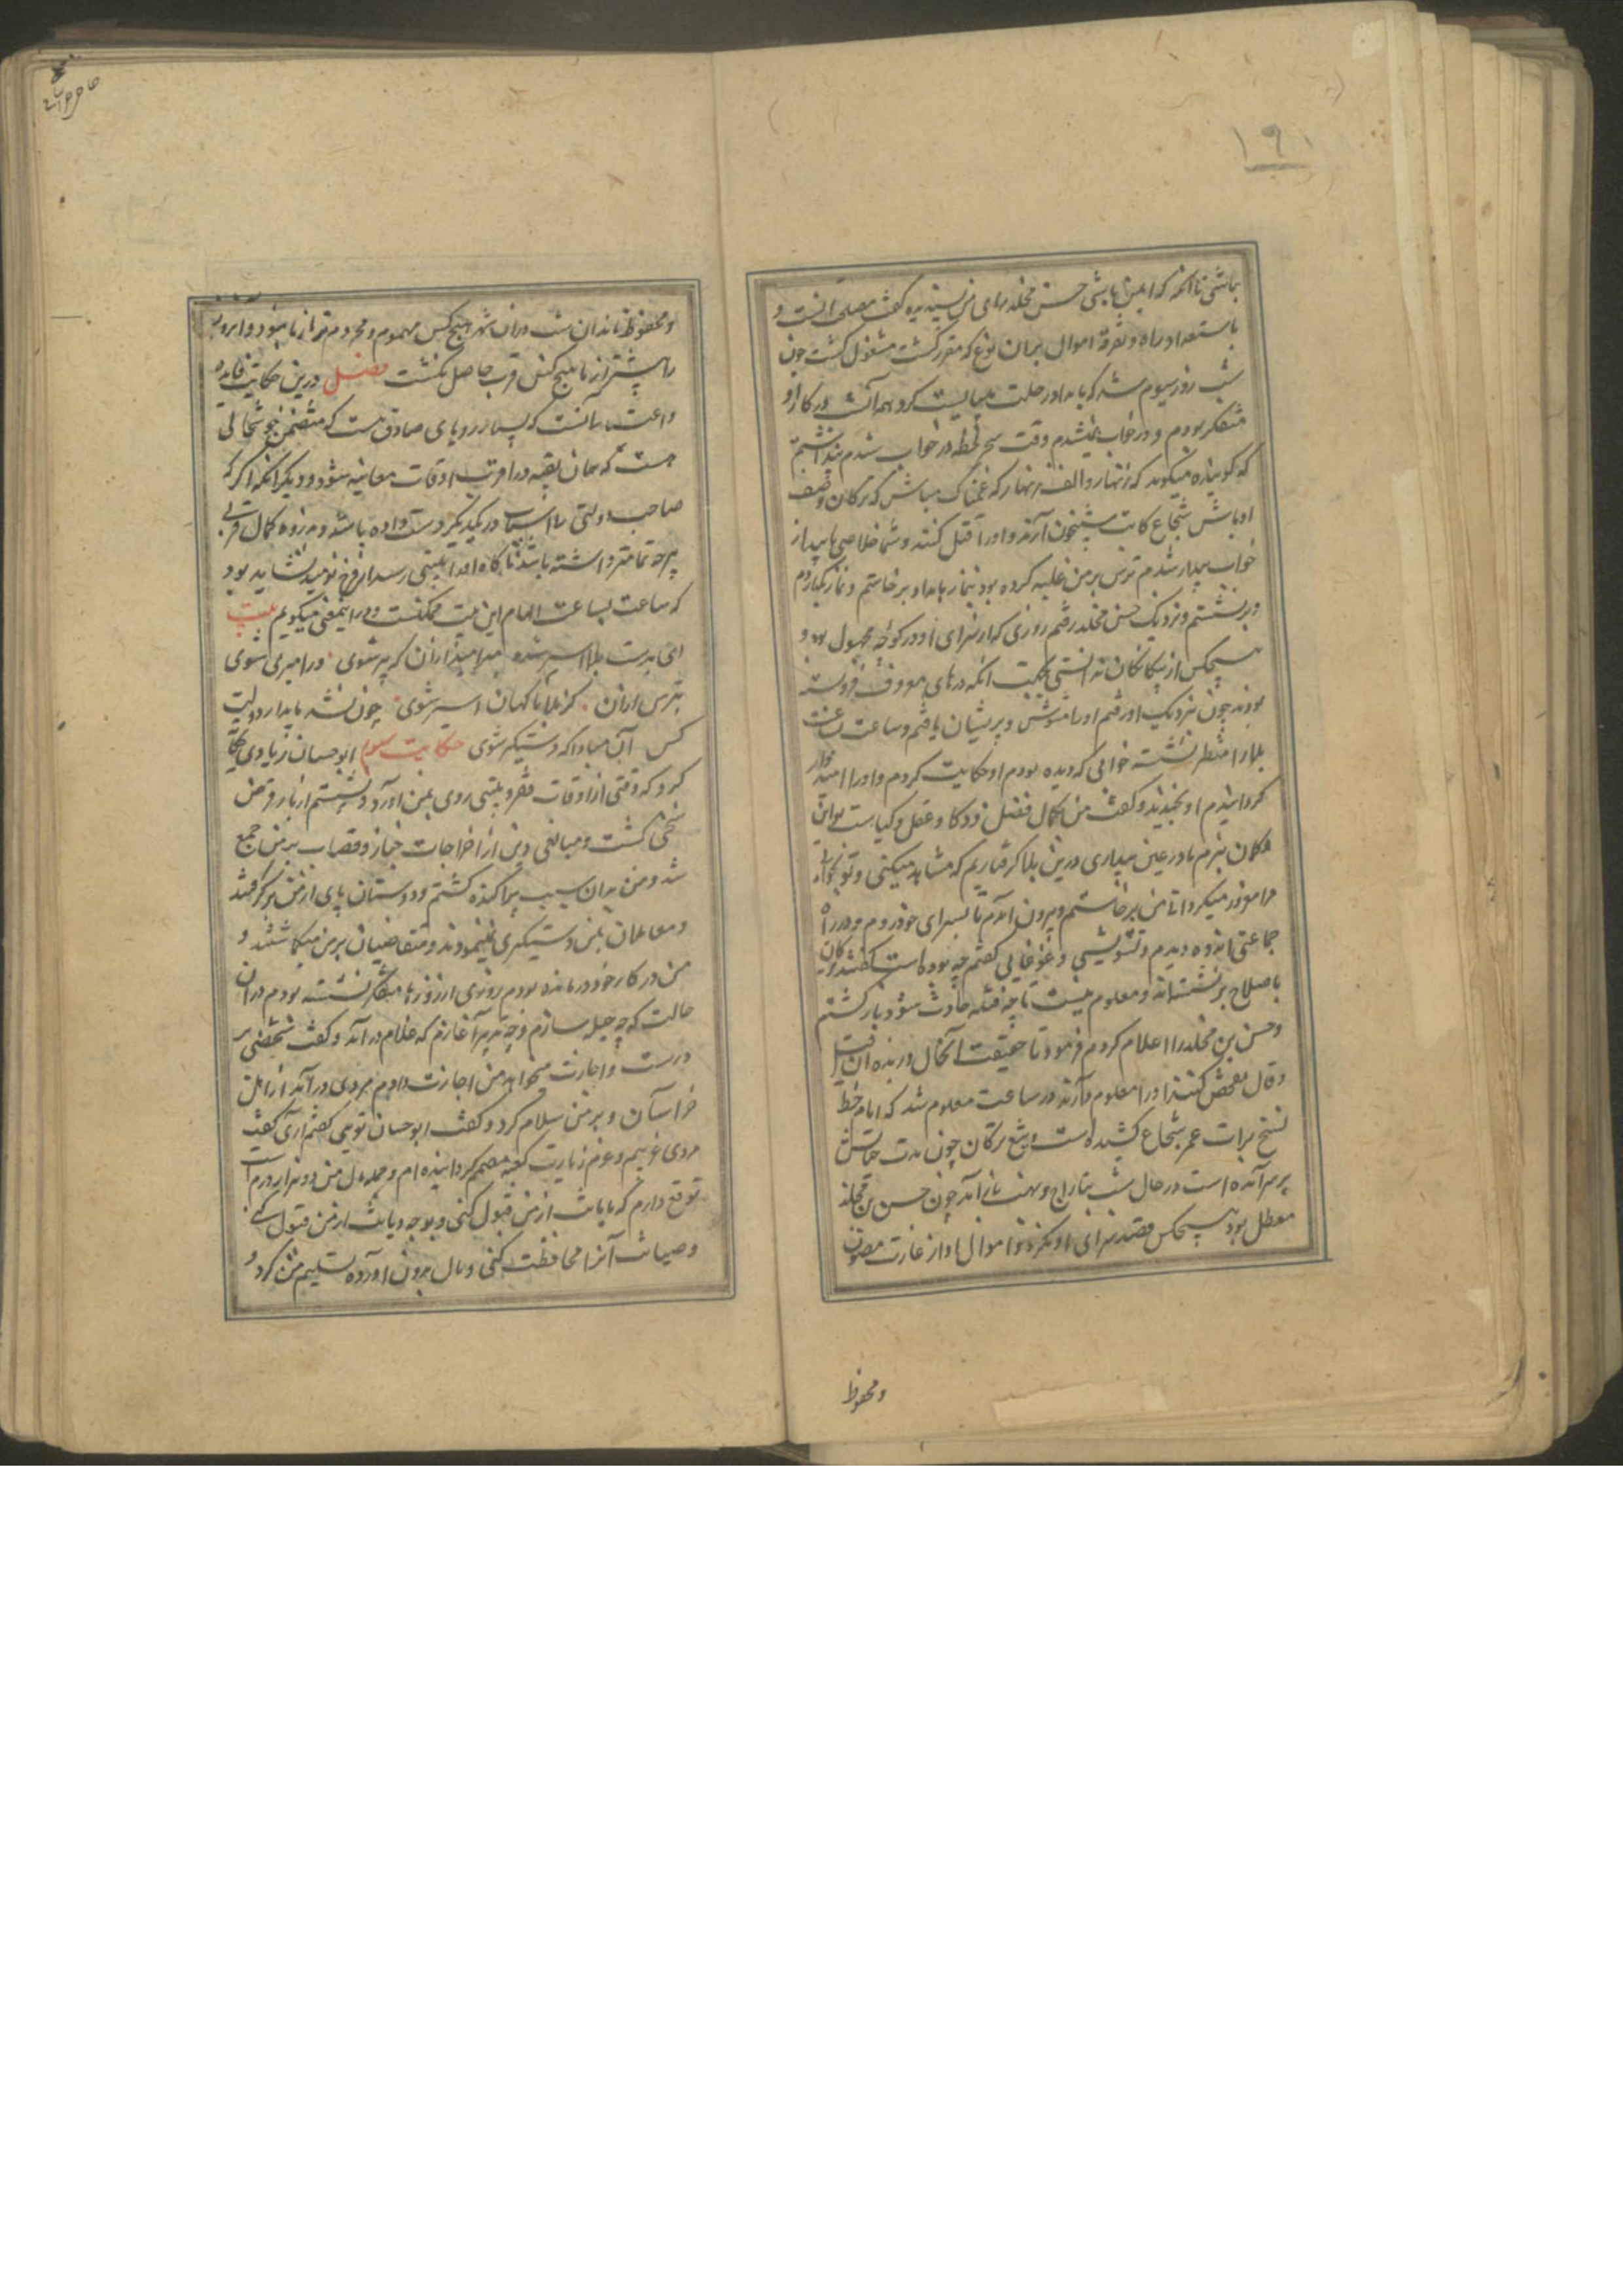 ۱۹۱
باشی تا آنکه که ایمن باشی حسن مخلد رای من پسندیده گفت مصلحت آنست و
باستعداد راه و تفرقه اموال بران نوع که مقرر گشت مشغول گشت چون
شب روز سیوم شد که بامداد رحلت میبایست کرد همه شب در کار او
متفکر بودم و در خواب نمیشدم وقت سحر لحظه در خواب شدم پنداشتم
که گوینده میگوید که زنهار و الف زنهار که غمناک مباش که ترکان وصیف
اوباش شجاع کاتب شبیخون آرند و او را قتل کنند و شما خلاصی یابید از
خواب بیدار شدم ترس بر من غلبه کرده بود نماز بامداد برخاستم و نماز بگزاردم
و برنشستم و نزدیک حسن مخلد رفتم روزی که از سرای او در کوچه مجهول بود و
هیچکس از بیگانگان ندانستی بجهت آنکه درهای معروف فرو بسته
بودند چون نزدیک او رفتم او را مشوش و پریشان یافتم و ساعت بساعت
بلا را منتظر نشسته خوابی که دیده بودم او حکایت کردم و او را امیدوار
گردانیدم او بخندید و گفت من بکمال فضل و ذکا و عقل و کیاست تو این
گمان نبردم ما در عین بیداری درین بلا گرفتاریم که مشاهده میکنی و تو بخوابی
مرا معذور میکردی تا من برخاستم و بیرون آمدم تا بسرای خود روم و در راه
جماعتی انبوه دیدم و تشویشی و غوغایی گفتم چه بوده است گفتند ترکان
باصلاح برنشسته‌اند و معلوم نیست تا چه فتنه حادث شود بازگشتم
و حسن بن مخلد را اعلام کردم فرمود تا حقیقت آنحال و زبده آن قیل
و قال تفحص کنند او را معلوم دارند در ساعت معلوم شد که ایام خط
نسخ برات عمر شجاع کشیده است و تیغ ترکان چون مدت حیاتش
بسر آمده است در حال شب بتاراج و نهب باز آمد چون حسن بن مخلد
معطل بود هیچکس قصد سرای او نکرد و اموال او از غارت مصون
و محفوظ
و محفوظ ماند آن شب دران شهر هیچ کس مهموم و محروم تر از ما نبود و آنروز
را بیشتر از ما هیچ کس قرب حاصل نگشت فصل درین حکایت فایده
و اعتبار آنست که بسیار رویای صادق هست که متضمن خوشحالی
هست که همان بقیه در اقرب اوقات معاینه شود و دیگر آنکه اگر که
صاحب دولتی را اسباب در یکدیگر دست داده باشد و بذروه کمال قربی
هرچه تمامتر داشته باشد ناگاه او را بلیتی رسد از فرخ نومید نشاید بود
که ساعت بساعت الهام این بیت ممکنست و درین معنی میگویم بیت
ای بدست بلا اسیر شده مبر امید ازان که پیر شوی ور امیری شوی
بترس ازان کز بلا ناگهان اسیر شوی چون نشد پایدار دولت
کس آن مبادا که دستگیر شوی حکایت سیوم ابوحسان زیادی حکایت
کرد که وقتی از اوقات فقر و بلیتی روی بمن آورد و پشتم از بار قرض
منحنی گشت و مبالغی دین از اخراجات خباز و قصاب بر من جمع
شد و من بدان سبب پراکنده گشتم و دوستان پای از من برگرفتند
و معاملان بمن دستگیری نمینمودند و متقاضیان بر من میگماشتند و
من در کار خود درمانده بودم روزی از روزها متفکر نشسته بودم دران
حالت که چه حیله سازم و چه تدبیر آغازم که غلام درآمد و گفت شخصی بر
درست و اجازت میخواهد من اجازت دادم مردی درآمد از اهل
خراسان و بر من سلام کرد و گفت ابوحسان تویی گفتم آری گفت
مردی غریبم و عزم زیارت کعبه مصمم گردانیده‌ام و جمله ده هزار درم است
توقع دارم که بامانت از من قبول کنی و بوجه دیانت از من قبول کنی
و صیانت آنرا محافظت کنی و مال بیرون آورده تسلیم من کرد و